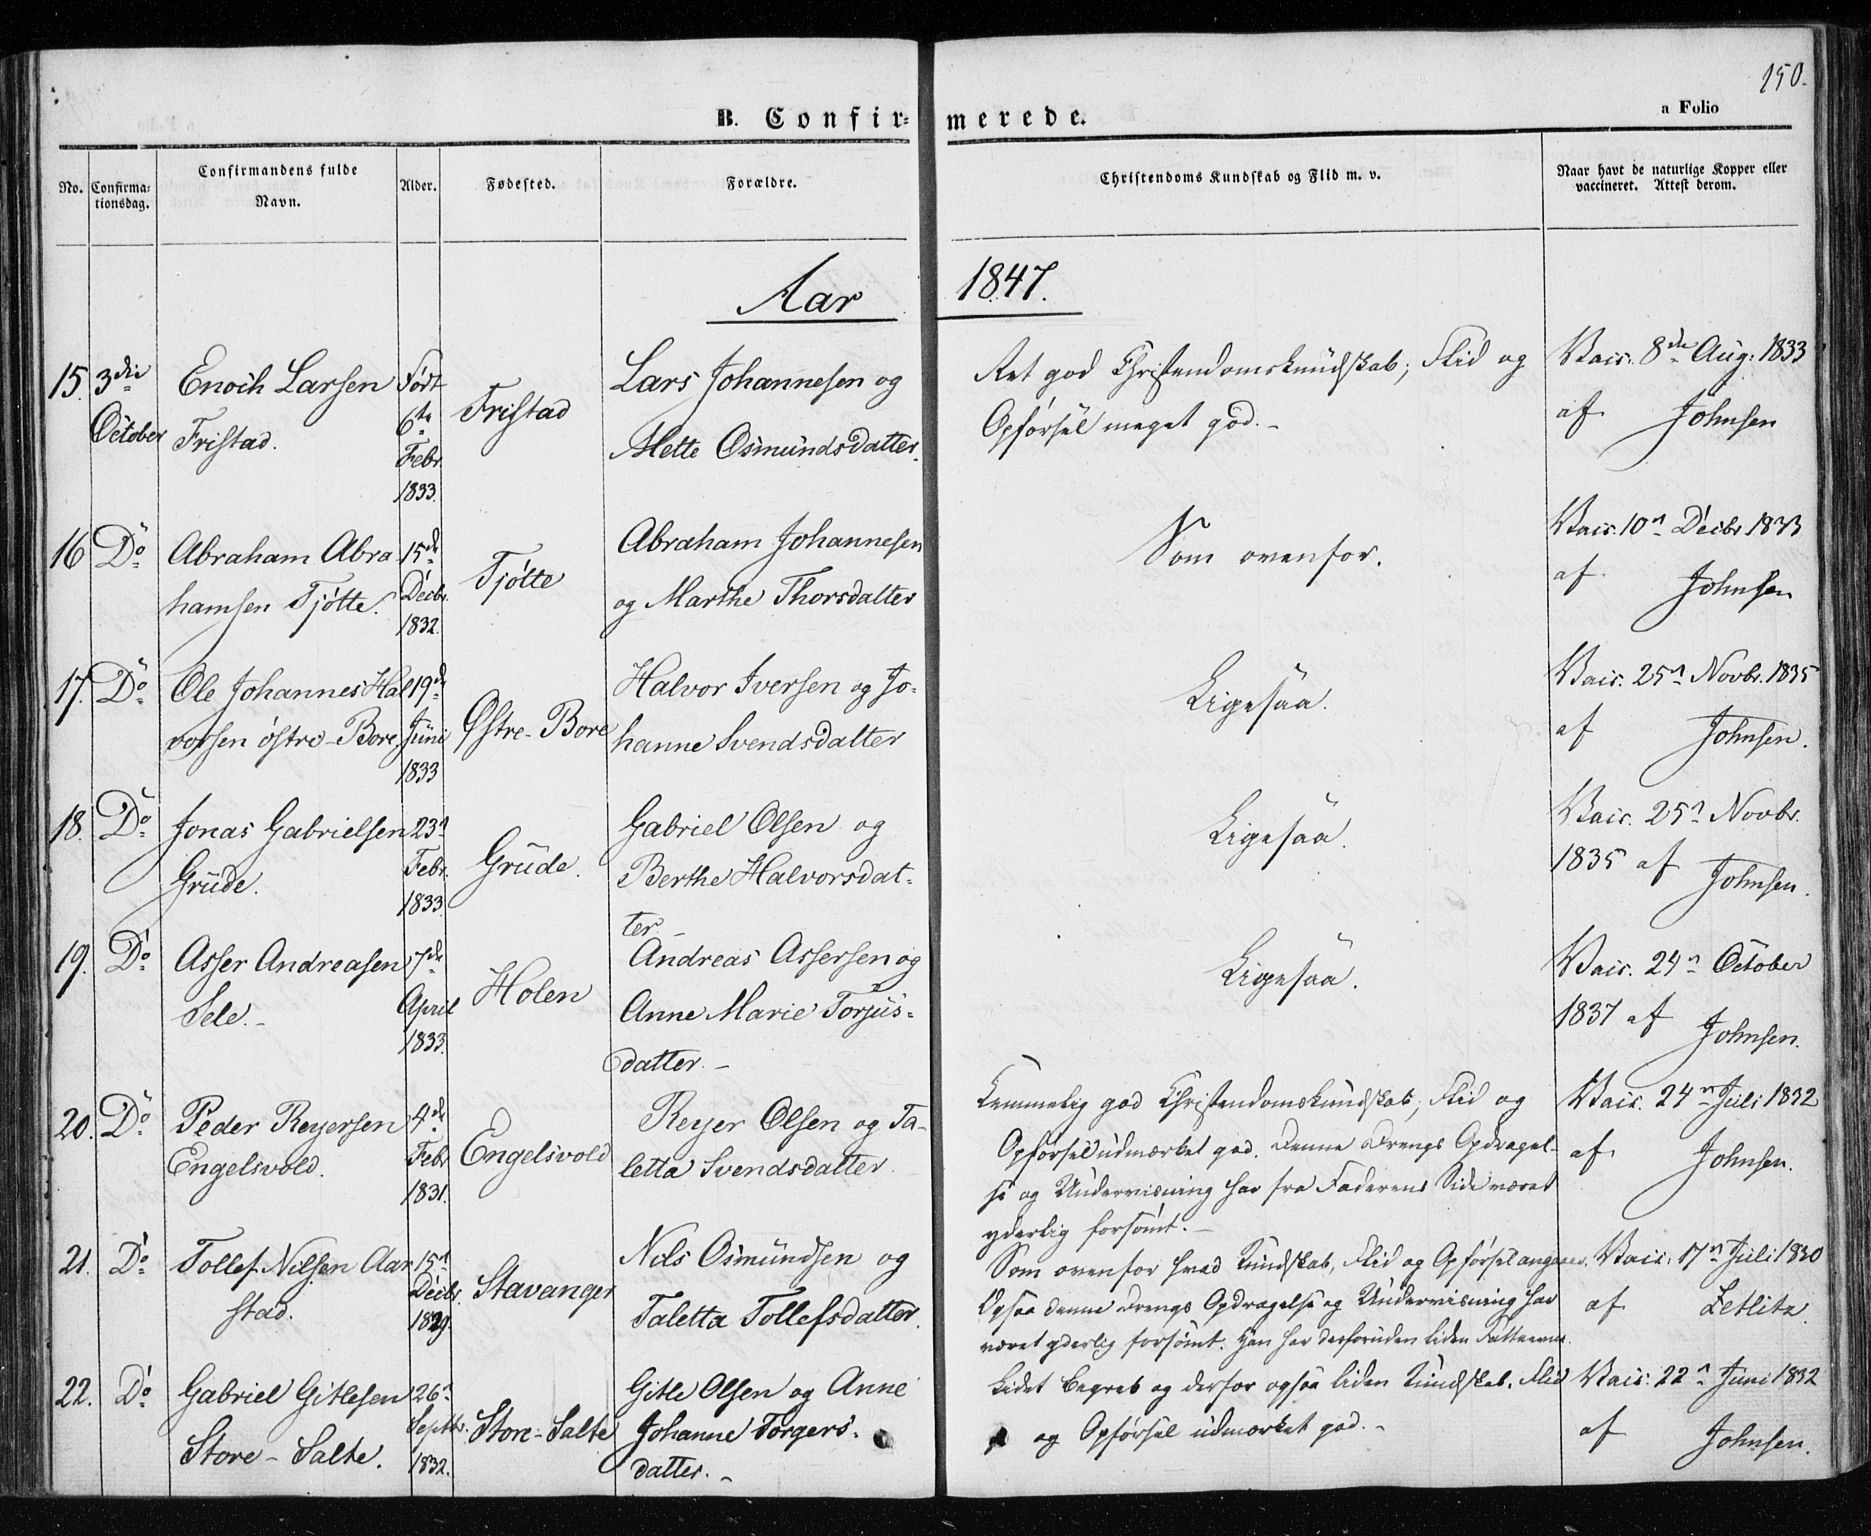 150.
B. Confirmerede.
a Folio
No.
Confirmationsdag.
Confirmandens fulde Navn.
Alder.
Fødested.
Forældre.
Christendoms Kundskab og Flid m. v.
Naar havt de naturlige Kopper eller vaccineret. Attest derom.
Aar 1847.
15. 3die Enoch Larsen Født Lars Johannesen og Ret god Christendomskundskab; Flid og Vacc. 8de Aug: 1833
October Fristad. 6te Febr. 1833. Fristad Mette Osmundsdatter. Opførsel meget god.- af Johnsen
16 Do Abraham Abra 15de Abraham Johannesen Som ovenfor. Vacc. 10n Decbr 1833
hamsen Tjøtte. Decbr. 1832. Tjøtte og Marthe Thorsdatter af Johnsen
17. Do Ole Johannes Hal 19de Halvor Iversen og Jo- Ligesaa. Vacc. 25n Novbr. 1835
vorsen østre-Bore Juni 1833 Østre-Bore hanne Svendsdatter af Johnsen.
18. Do Jonas Gabrielsen 23n Gabriel Olsen og Ligesaa. Vacc. 25n Novbr.
Grude. Febr. 1833. Grude. Berthe Halvorsdat- 1835 af Johnsen.
ter.
19. Do Asser Andreasen 7de Andreas Assersen og Ligesaa. Vacc. 24n October
Sele.- April 1833. Holen Anne Marie Torjus- 1837 af Johnsen.
datter.-
20. Do Peder Reyersen 4de Reyer Olsen og Ta- Temmelig god Christendomskundskab; Flid og Vacc. 24n Juli 1832
Engelsvold. Febr 1831. Engelsvold letta Svendsdatter. Opførsel udmærket god. Denne Drengs Opdragel- af Johnsen.
se og Underviisning har fra Faderens Side været
yderlig forsømt.-
21. Do Tollef Nilsen Aar 15n Nils Osmundsen og Som ovenfor hvad Kundskab, Flid og Opførsel angaaer. Vacc. 17n Juli 1830
stad. Decbr. 1829. Stavanger Taletta Tollefsdatter. Ogsaa denne Drengs Opdragelse og Underviisning har af Zetlitz.
været yderlig forsømt. Han har desforuden liden Fatteevne.
22. Do Gabriel Gitlesen 26n Gitle Olsen og Anne Lidet Begreb og derfor ogsaa liden Kundskab. Flid Vacc. 22n Juni 1832
Store-Salte. Septbr. 1832. Store-Salte Johanne Torgers- og Opførsel udmærket god.- af Johnsen.
datter.-